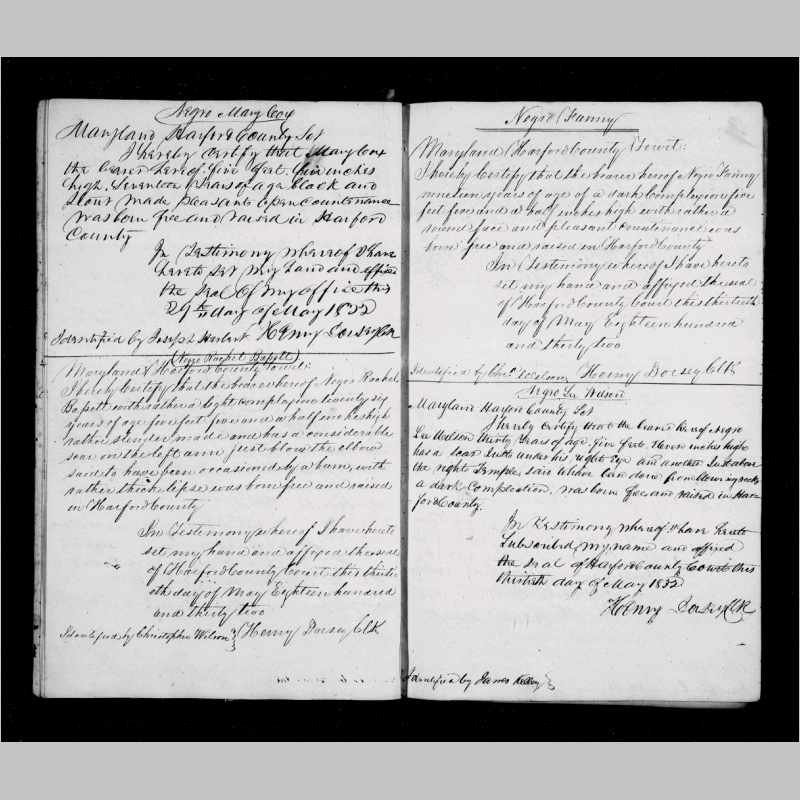 Negro Mary Cox
Maryland Harford County Sct
I hereby certify that Mary Cox
the bearer hereof five feet five inches
high Seventeen Years of age black and
Stout made pleasant open Countenance
was born free and raised in Harford
County
In Testimony whereof I have
hereto set my hand and affixed
the Seal of my office this
29th day of May 1832
Identified by Joseph Henry Dorsey Clk
Negro Rachel Bassett
Maryland Harford County Towit:
I hereby Certify that the bearer hereof Negro Rachel
Bassett with rather a light complexion twenty six
years of age five feet five and a half inches high
rather slender made and has a considerable
scar on the left arm just blow the elbow
said to have been occasioned by a burn, with
rather thick lips was born free and raised
in Harford County
In Testimony whereof I have hereto
set my hand and affixed the seal
of Harford County Court this thirti-
eth day of May Eighteen hundred
and thirty two
Identified by Christopher Wilson } Henry Dorsey Clk
Negro Fanny
Maryland Harford County Towit:
I hereby Certify that the bearer hereof Negro Fanny
nineteen years of age of a dark Complexion five
feet five and a half inches high with rather a
round face and pleasant countenance was
born free and raised in Harford County
In Testimony whereof I have hereto
set my hand and affixed the seal
of Harford County Court this thirtieth
day of May Eighteen hundred
and thirty two
Identified by Chr. Wilson Henry Dorsey Clk
Negro Wilson
Maryland Harford County Sct
I hereby certify that the bearer hereof Negro
Wilson thirty Years of age five feet Seven inches high
has a Scar Just under his right Eye and another Just above
the right Temple, said
a dark Complection, was born free and raised in Har
ford County.
In Testimony whereof I have hereto
Subscribed my name and affixed
the Seal of Harford County Court this
thirtieth day of May 1832
Henry Dorsey Clk
Identified by James Kelly